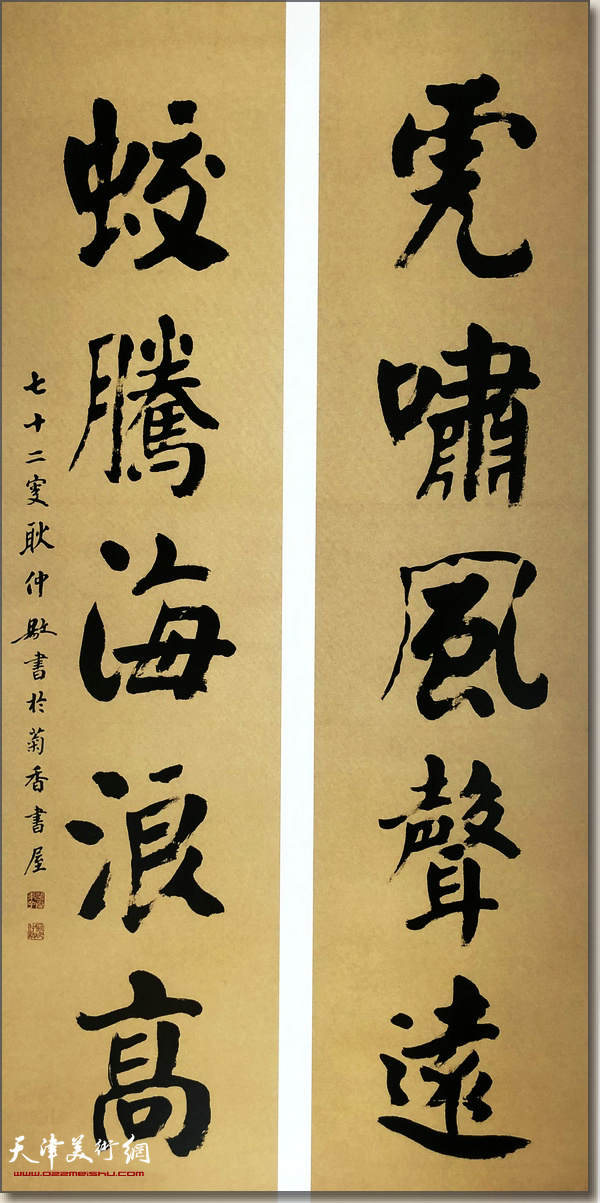 虎嘯風聲遠
蛟騰海浪高
七十二叟耿仲敭書於菊香書屋
天津美術網
www.022meishu.com